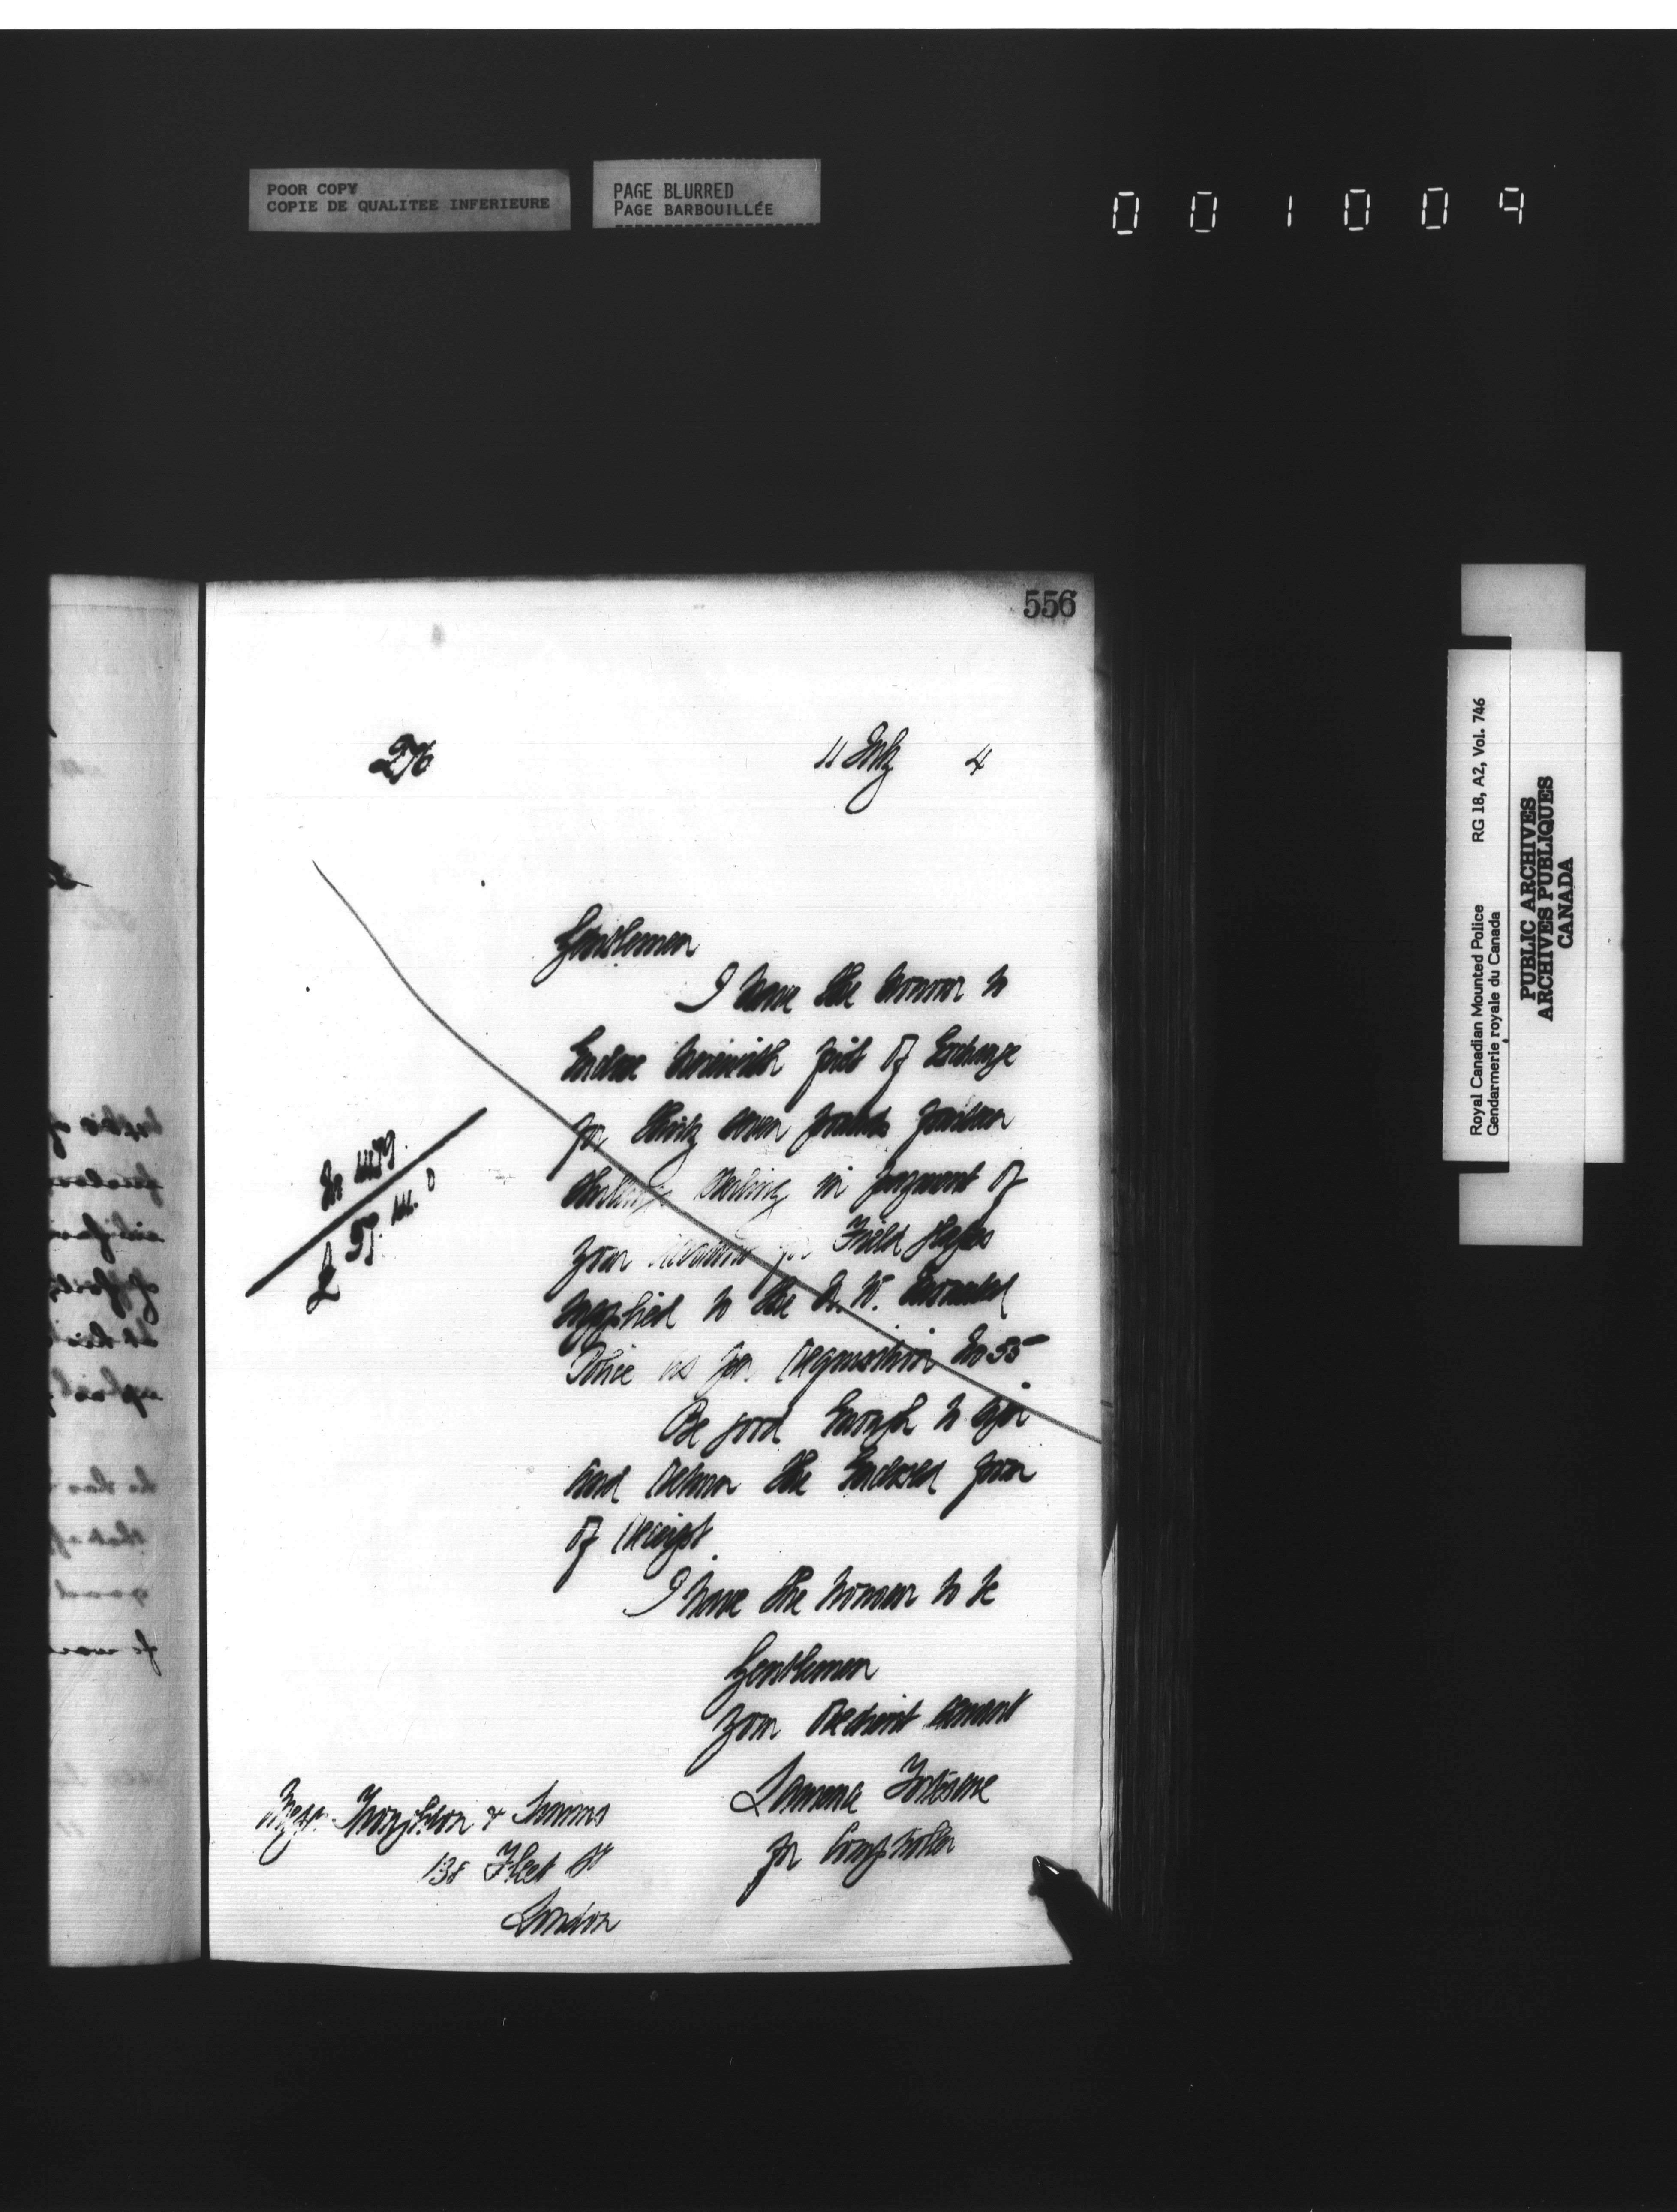 POOR COPY
COPIE DE QUALITEE INFERIEURE
PAGE BLURRED
PAGE BARBOUILLÉE
001009
556
276
11 July 4
Gentlemen
I have the honour to
Enclose herewith first of Exchange
for thirty seven pounds fourteen
shillings Sterling in payment of
your account for Field Glasses
supplied to the N. W. Mounted
Police as per requisition No 55.
Be good Enough to sign
and return the Enclosed form
of receipt.
I have the honour to be
Gentlemen
Your obedient servant
Lawrence Fortescue
for Comptroller
£ 37. 14. 0
Messrs. Troughton & Simms
138 Fleet St
London
Royal Canadian Mounted Police RG 18, A2, Vol. 746
Gendarmerie royale du Canada
PUBLIC ARCHIVES
ARCHIVES PUBLIQUES
CANADA